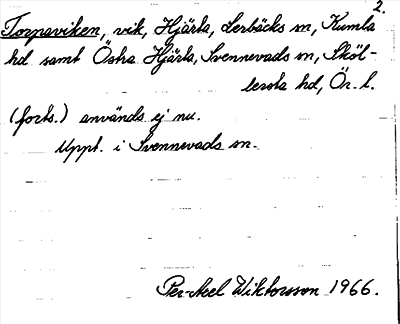 2.
Torpaviken, vik, Hjärta, Lerbäcks sn, Kumla
hd samt Östra Hjärta, Svennevads sn, Sköl-
lersta hd, Ör. l.
(forts.) används ej nu.
Uppt. i Svennevads sn.
Per-Axel Wiktorsson 1966.